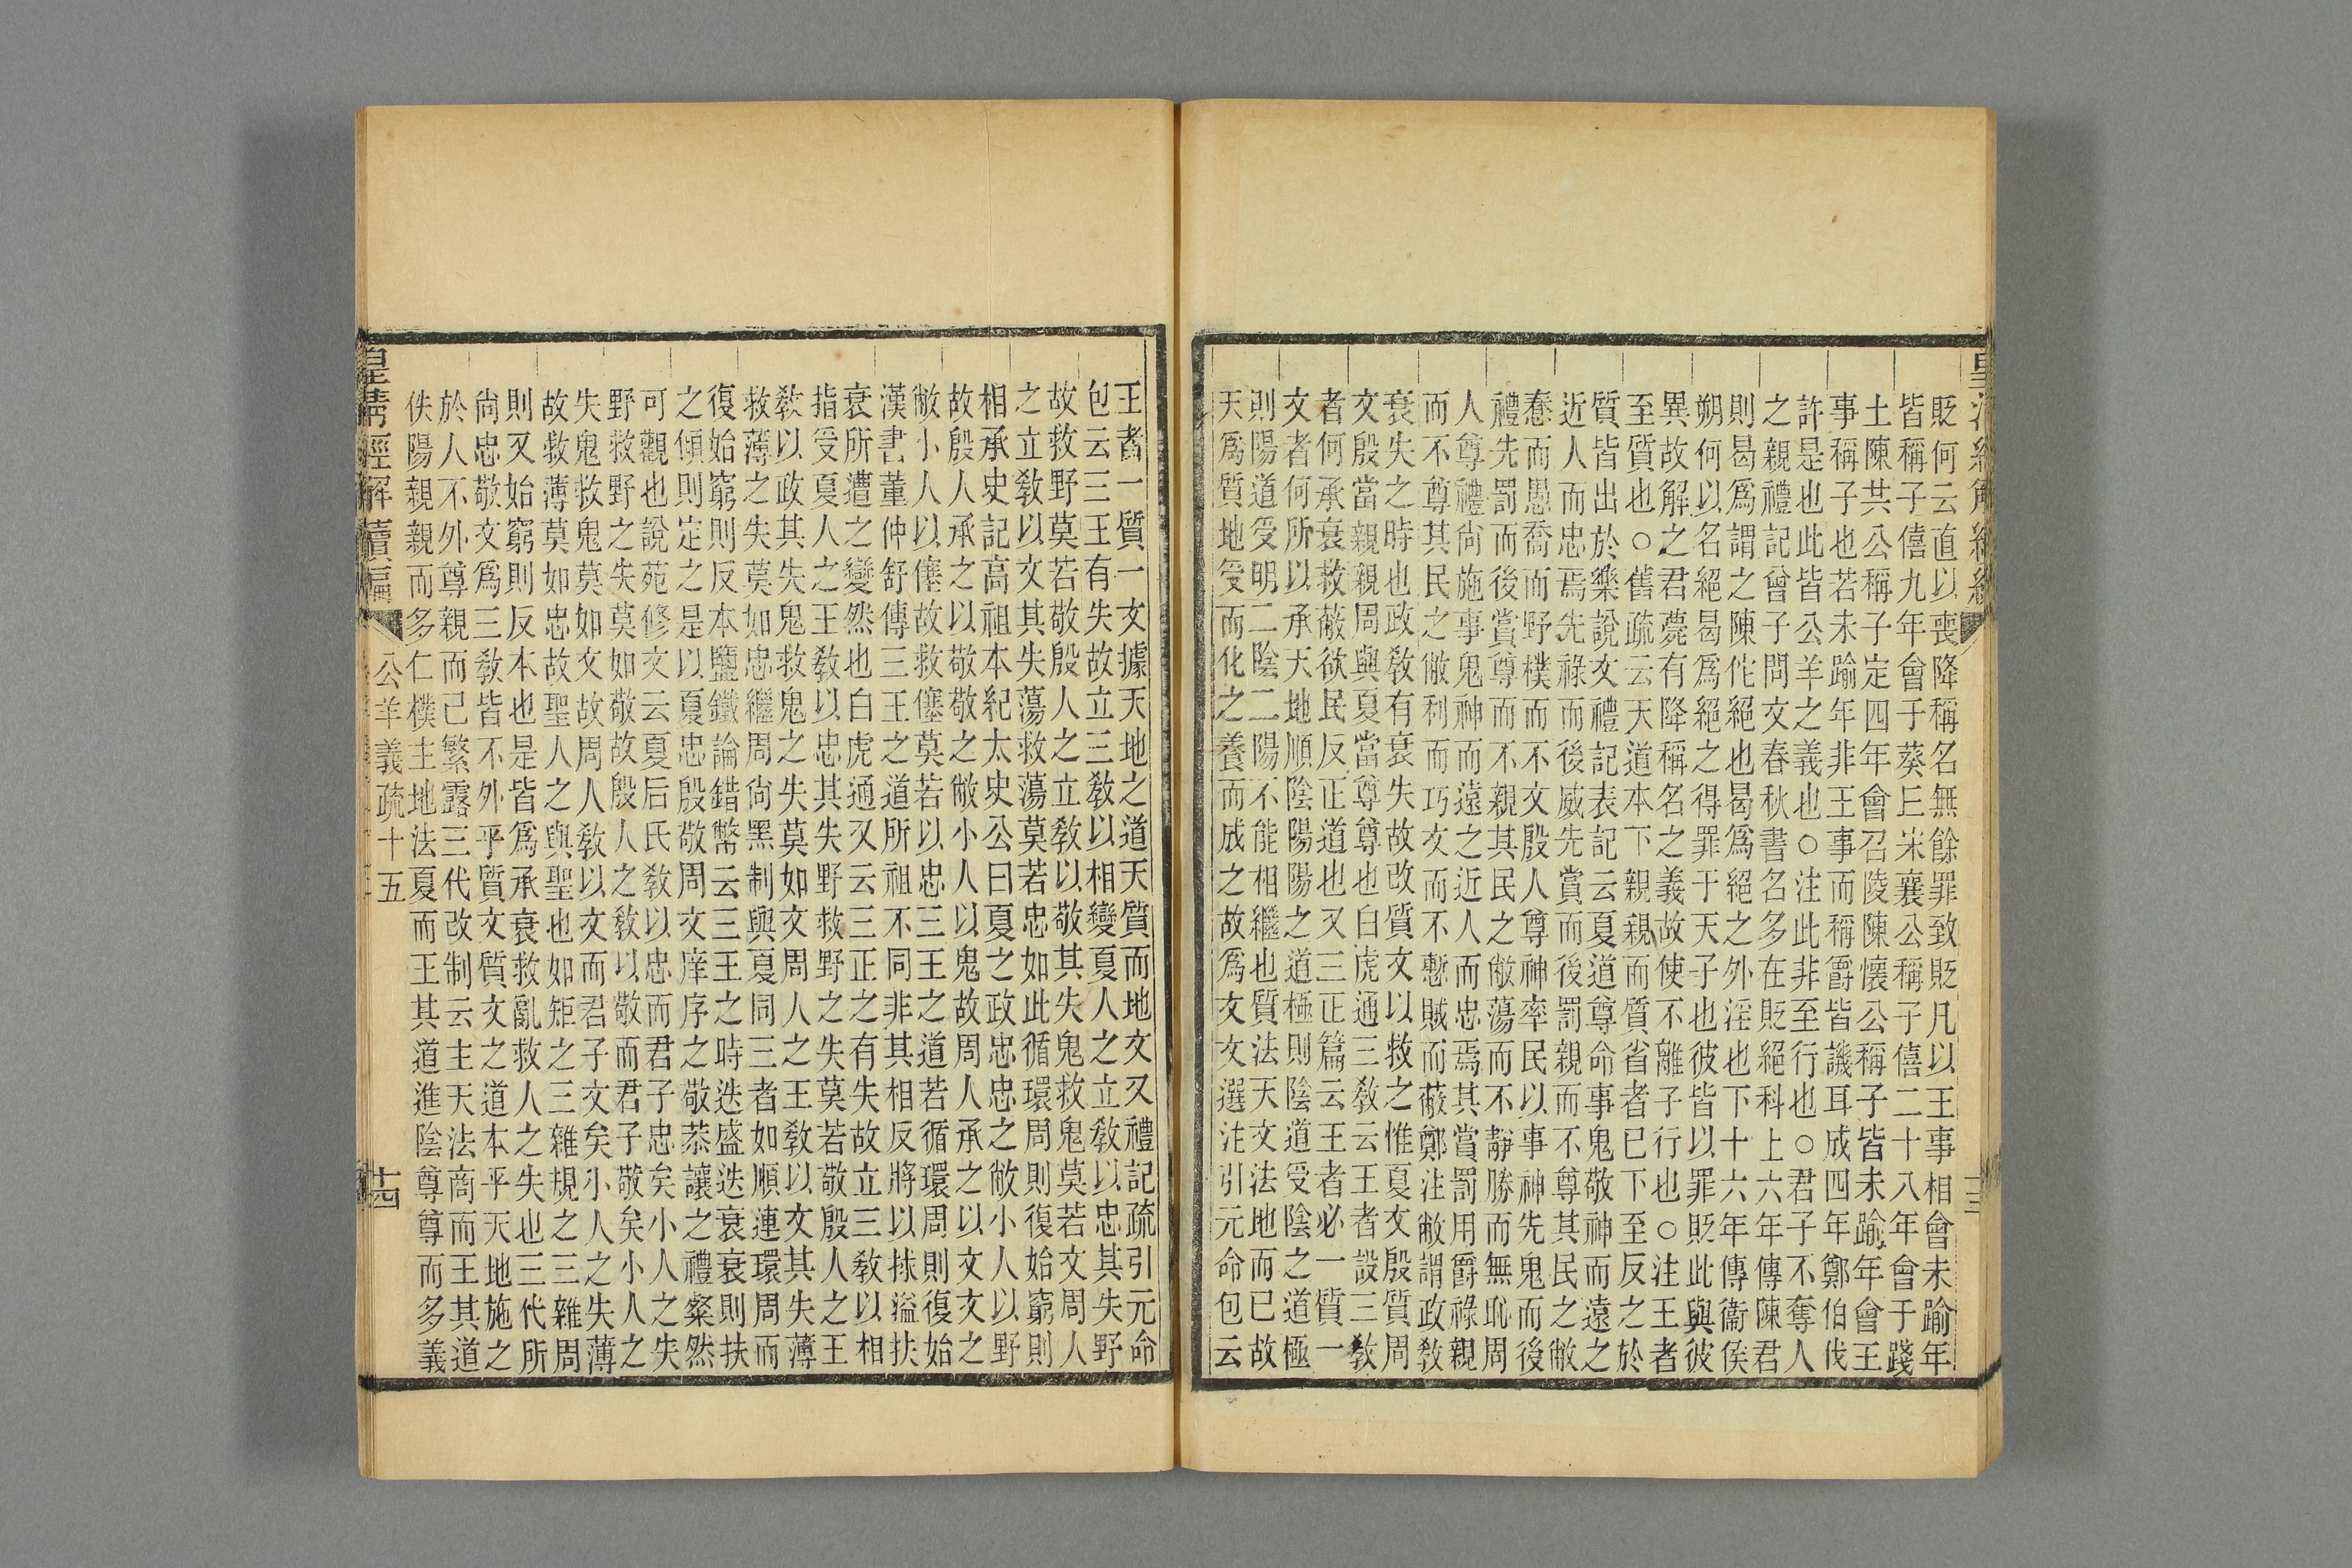 貶何云直以喪降稱名無餘罪致貶凡以王事相會未踰年
皆稱子僖九年會于葵丘宋襄公稱子僖二十八年會于踐
土陳共公稱子定四年會召陵陳懷公稱子皆未踰年會王
事稱子也若未踰年非王事而稱爵皆譏耳成四年鄭伯伐
許是也此皆公羊之義也○注此非至行也○君子不奪人
之親禮記曾子問文春秋書名多在貶絕科上六年傳陳君
則曷爲謂之陳佗絕也曷爲絕之外淫也下十六年傳衞侯
朔何以名絕曷爲絕之得罪于天子也彼皆以罪貶此與彼
異故解之君薨有降稱名之義故使不離子行也○注王者
至質也○舊疏云天道本下親親而質省者已下至反之於
質皆出於樂說文禮記表記云夏道尊命事鬼敬神而遠之
近人而忠焉先祿而後威先賞而後罰親而不尊其民之敝
惷而愚喬而野樸而不文殷人尊神率民以事神先鬼而後
禮先罰而後賞尊而不親其民之敝蕩而不靜勝而無恥周
人尊禮尙施事鬼神而遠之近人而忠焉其賞罰用爵祿親
而不尊其民之敝利而巧文而不慙賊而蔽鄭注敝謂政敎
衰失之時也政敎有衰失故改質文以救之惟夏文殷質周
文殷當親親周與夏當尊尊也白虎通三敎云王者設三敎
者何承衰救蔽欲民反正道也又三正篇云王者必一質一
文者何所以承天地順陰陽陽之道極則陰道受陰之道極
則陽道受明二陰二陽不能相繼也質法天文法地而已故
天爲質地受而化之養而成之故爲文文選注引元命包云
王者一質一文據天地之道天質而地文又禮記疏引元命
包云三王有失故立三敎以相變夏人之立敎以忠其失野
故救野莫若敬殷人之立敎以敬其失鬼救鬼莫若文周人
之立敎以文其失蕩救蕩莫若忠如此循環周則復始窮則
相承史記高祖本紀太史公曰夏之政忠忠之敝小人以野
故殷人承之以敬敬之敝小人以鬼故周人承之以文文之
敝小人以僿故救僿莫若以忠三王之道若循環周則復始
漢書董仲舒傳三王之道所祖不同非其相反將以捄溢扶
衰所遭之變然也白虎通又云三正之有失故立三敎以相
指受夏人之王敎以忠其失野救野之失莫若敬殷人之王
敎以政其失鬼救鬼之失莫如文周人之王敎以文其失薄
救薄之失莫如忠繼周尙黑制與夏同三者如順連環周而
復始窮則反本鹽鐵論錯幣云三王之時迭盛迭衰衰則扶
之傾則定之是以夏忠殷敬周文庠序之敬恭讓之禮粲然
可觀也說苑修文云夏后氏敎以忠而君子忠矣小人之失
野救野之失莫如敬故殷人之敎以敬而君子敬矣小人之
失鬼救鬼莫如文故周人敎以文而君子文矣小人之失薄
故救薄莫如忠故聖人之與聖也如矩之三雜規之三雜周
則又始窮則反本也是皆爲承衰救亂救人之失也三代所
尙忠敬文爲三敎皆不外乎質文質文之道本乎天地施之
於人不外尊親而已繁露三代改制云主天法商而王其道
佚陽親親而多仁樸主地法夏而王其道進陰尊尊而多義
皇淸經解續編
公羊義疏十五
十四